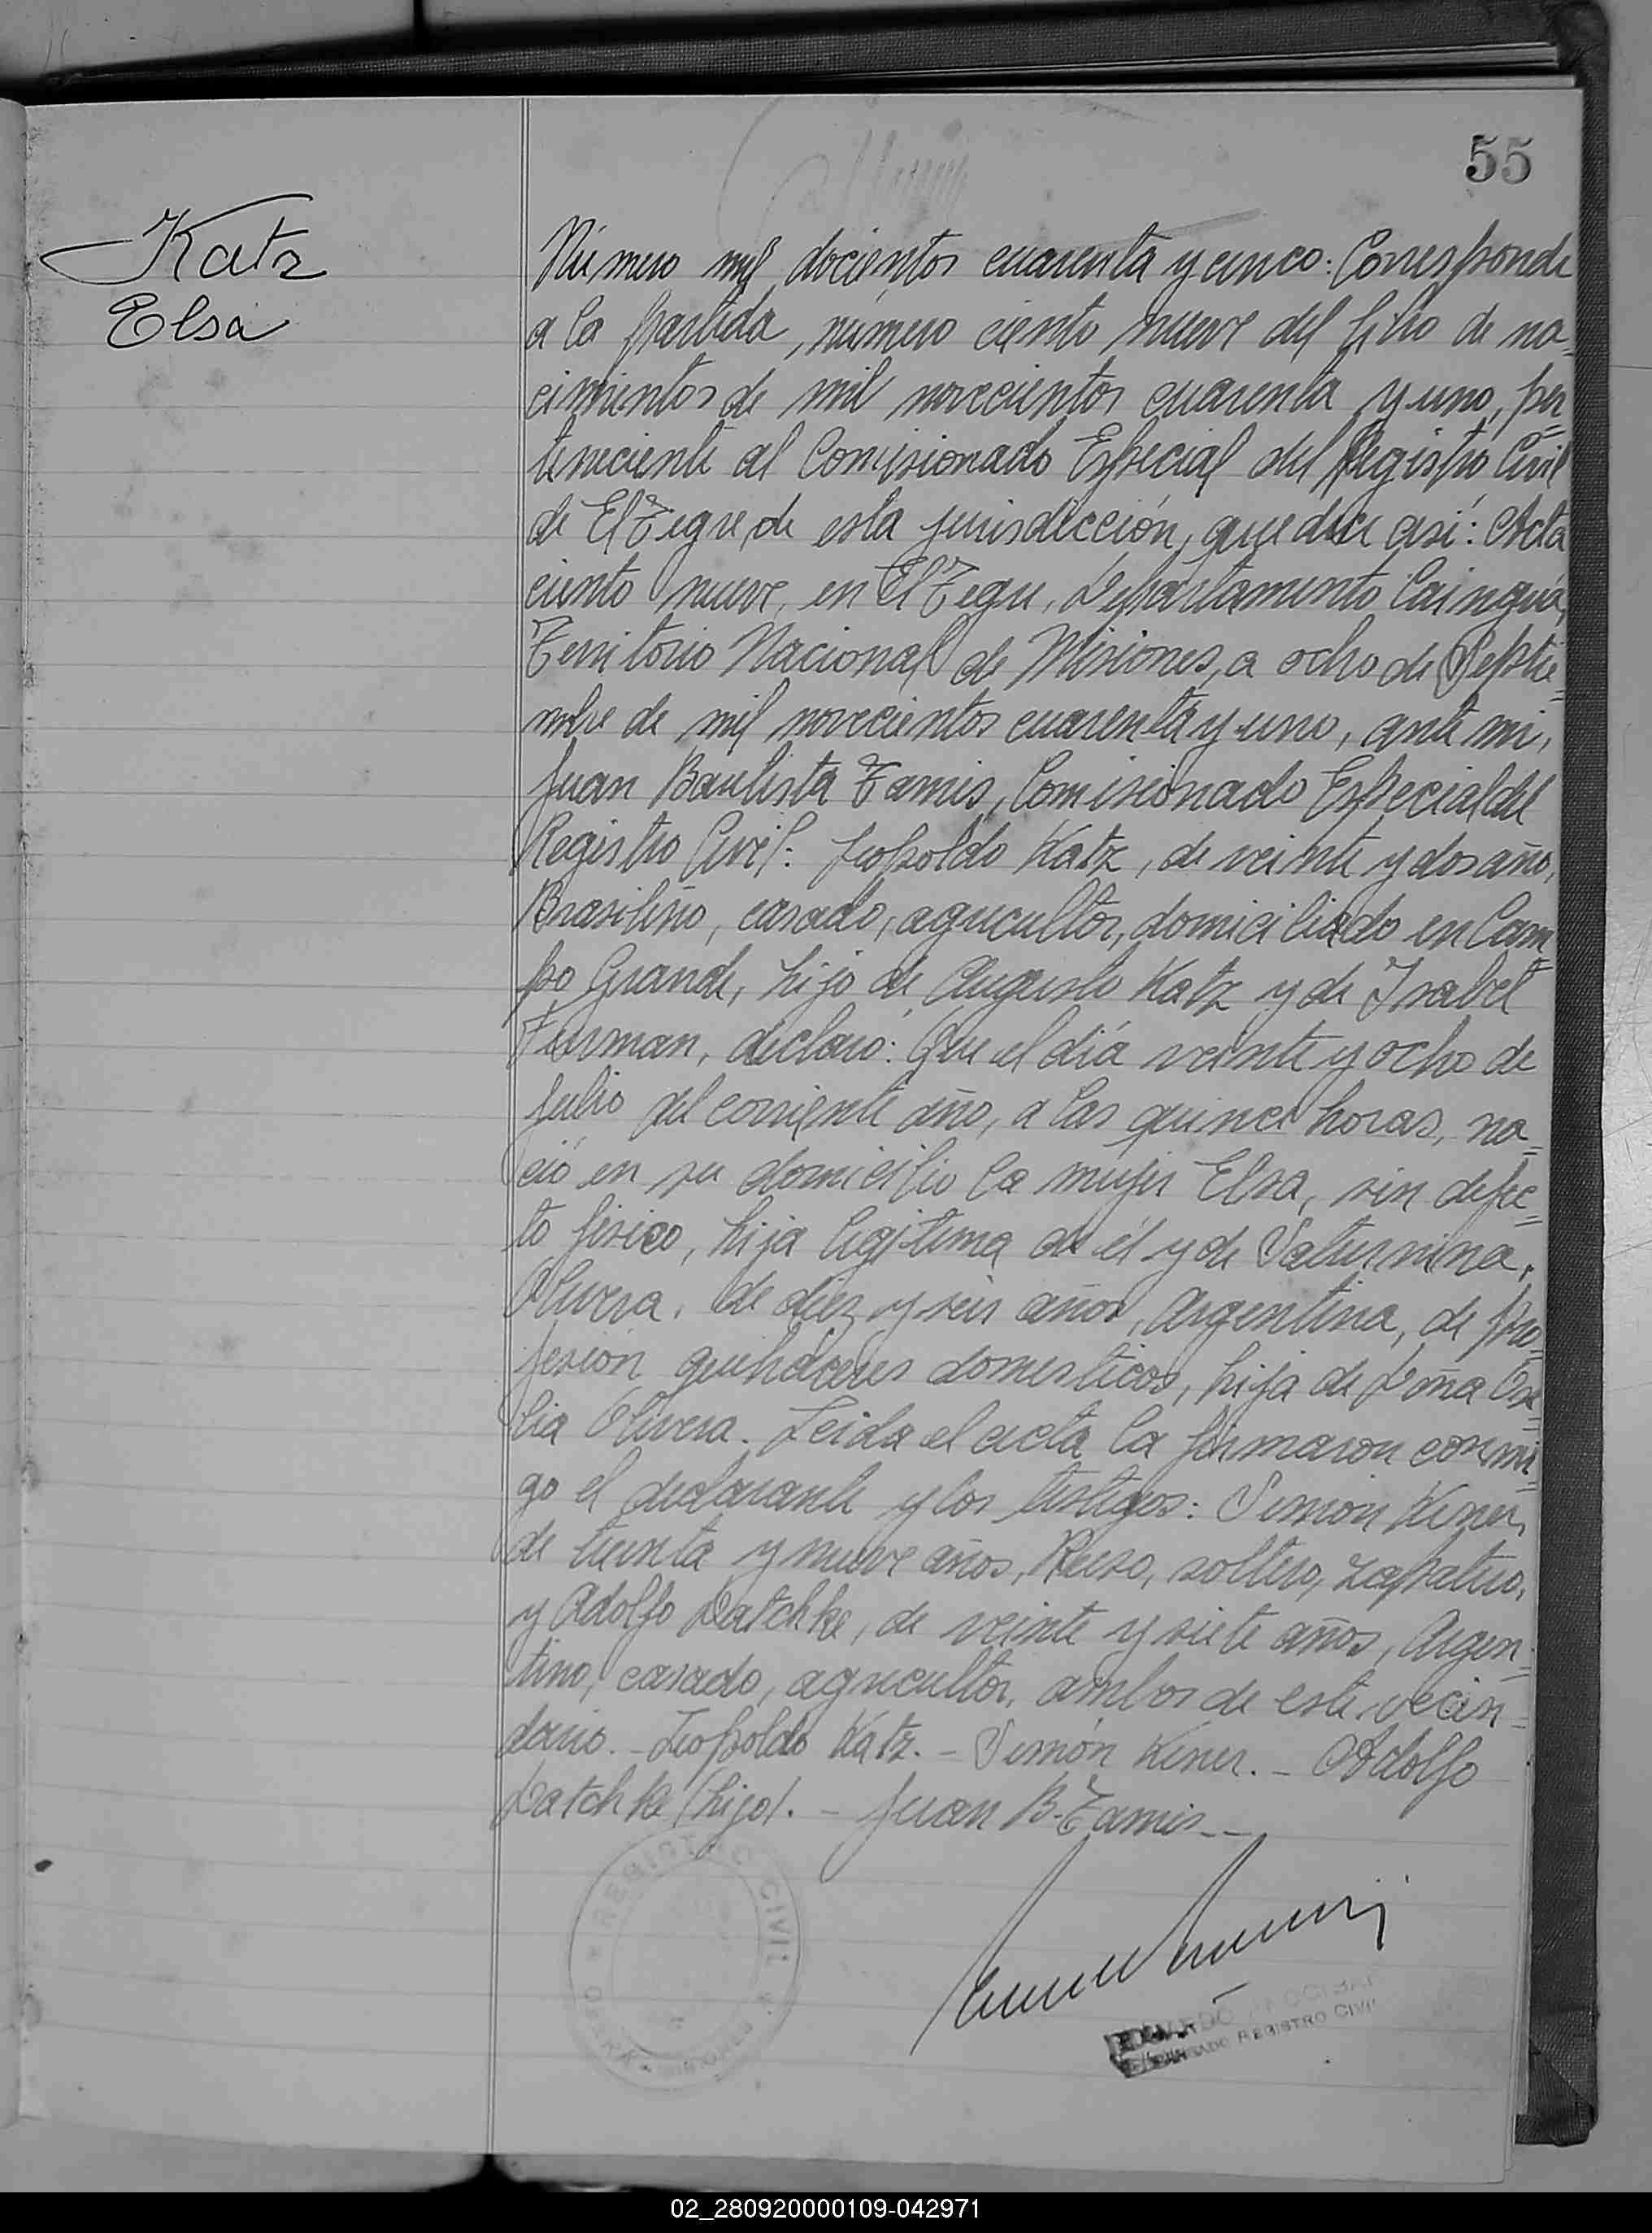 55
Katz
Elsa
Número mil docientos cuarenta y cinco: Corresponde
a la partida, número ciento nueve del libro de na=
cimientos de mil novecientos cuarenta y uno, per=
teneciente al Comisionado Especial del Registro Civil
de El Tegre, de esta jurisdicción, que dice así: Acta
ciento nueve, en El Tegre, Departamento Cainguás,
Territorio Nacional de Misiones, a ocho de Septie=
mbre de mil novecientos cuarenta y uno, ante mi,
Juan Bautista Tamis, Comisionado Especial del
Registro Civil: Leopoldo Katz, de veinte y dos años,
Brasileño, casado, agricultor, domiciliado en Cam=
po Grande, hijo de Augusto Katz y de Isabel
Furman, declaró: Que el día veinte y ocho de
Julio del corriente año, a las quince horas, na=
ció en su domicilio la mujer Elsa, sin defec=
to fisico, hija legitima de él y de Saturnina
Olivera, de diez y seis años, Argentina, de pro=
fesión quehaceres domesticos, hija de Doña
Olivera. Leida el acta la firmaron conmi=
go el declarante y los testigos: Simon Kiner,
de treinta y nueve años, Ruso, soltero, zapatero,
y Adolfo Datchke, de veinte y siete años, Argen=
tino, casado, agricultor, ambos de este vecin=
dario. - Leopoldo Katz. - Simón Kiner. - Adolfo
Datchke (hijo). - Juan B. Tamis - -
REGISTRO CIVIL
REGISTRO CIVIL
02_280920000109-042971